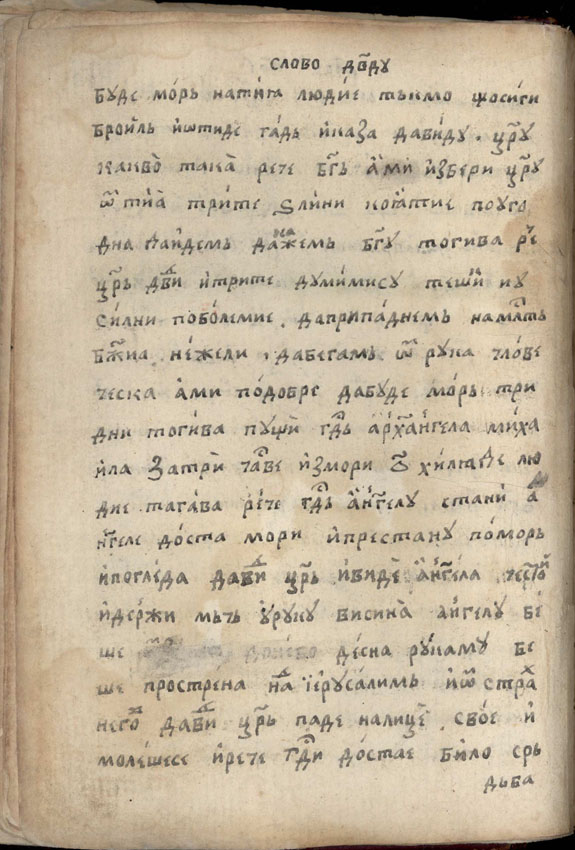 слово дв҃ду
буде мо́рь натиѧ людїе тъкмо що си́ги
бройль ѝ ѿтиде га́дь ѝ каза давиду. цр҃у
какво̀ така̀ рече бг҃ь а́ми ѝзбери цр҃у
ѿ тїа̀ трите ѕлини кое́тие поуго
дна да и́демь да кажемь бг҃у тогива рч҃е
цр҃ь дв҃и ѝ трите думи́ми су теши и у
си́лни побо́лемие. да припа́днемь на мл҃ть
бж҃иа не́жели, да бегамь ѿ рука чло́ве
ческа а́ми по́добре да буде мо́рь три
дни тоги́ва пущи̇̀ гд҃ь а҆рха҃нг҃ела миха
и́ла за три̇̀ ча́ве ѝзмори о҃ хилѧде лю
дие тага́ва ре́че гд҃ь а҆нг҃елу стани̇̀ а҆
нг҃еле до́ста мори ѝ престану по́морь
ѝ погле́да дави цр҃ь ѝ виде̇̀ а҆нг҃ела че́сты
ѝ де́ржи мъчь у҆ руку висина̀ а́нгелу бе́
ше до небо де́сна рука му бе
ше простре́на на́д іе҆руса́лимь ѝ ѿ стра
него дави цр҃ь паде на лице̇̀ свое́ ѝ
моле́шесе ѝ рече гд҃и до́стае би́ло срь
дьба